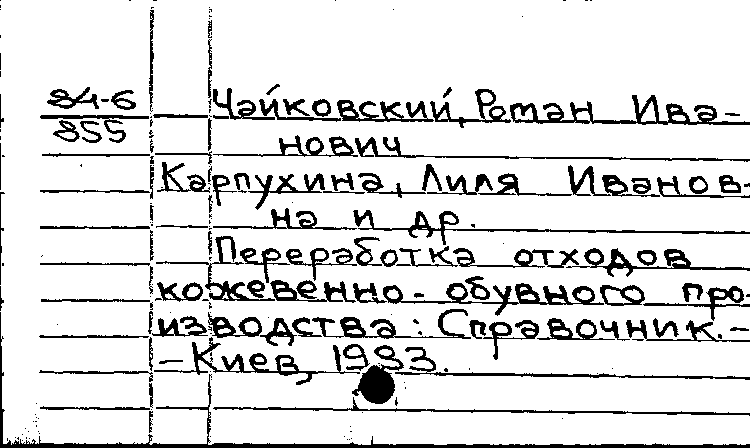 84-6
855
Чайковский, Роман Ива-
нович
Карпухина, Лиля Иванов-
на и др.
Переработка отходов
кожевенно-обувного про-
изводства: Справочник.-
-Киев, 1983.